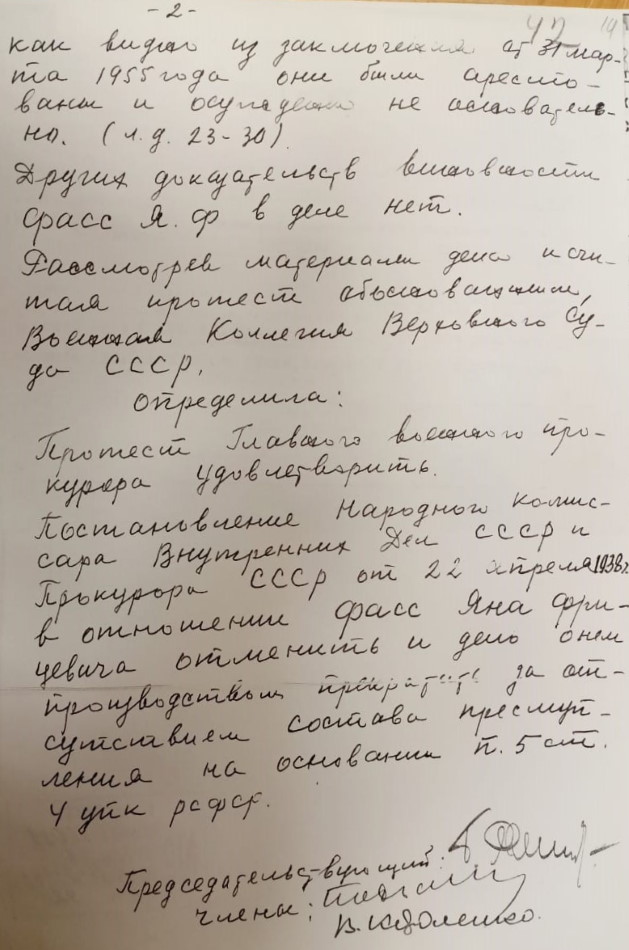 - 2 -
42 14
как видно из заключения от 31 мар-
та 1955 года они были аресто-
ваны и осуждены не основатель-
но. (л.д. 23-30)
Других доказательств виновности
Фасс Я.Ф в деле нет.
Рассмотрев материалы дела и счи-
тая протест обоснованным,
Военная Коллегия Верховного Су-
да СССР,
определила:
Протест Главного военного про-
курора удовлетворить.
Постановление Народного комис-
сара Внутренних Дел СССР и
Прокурора СССР от 22 апреля 1938 г.
в отношении Фасс Яна Фри-
цевича отменить и дело о нем
производством прекратить за от-
сутствием состава преступ-
ления на основании п. 5 ст.
4 УПК РСФСР.
Председательствующий:
Члены: